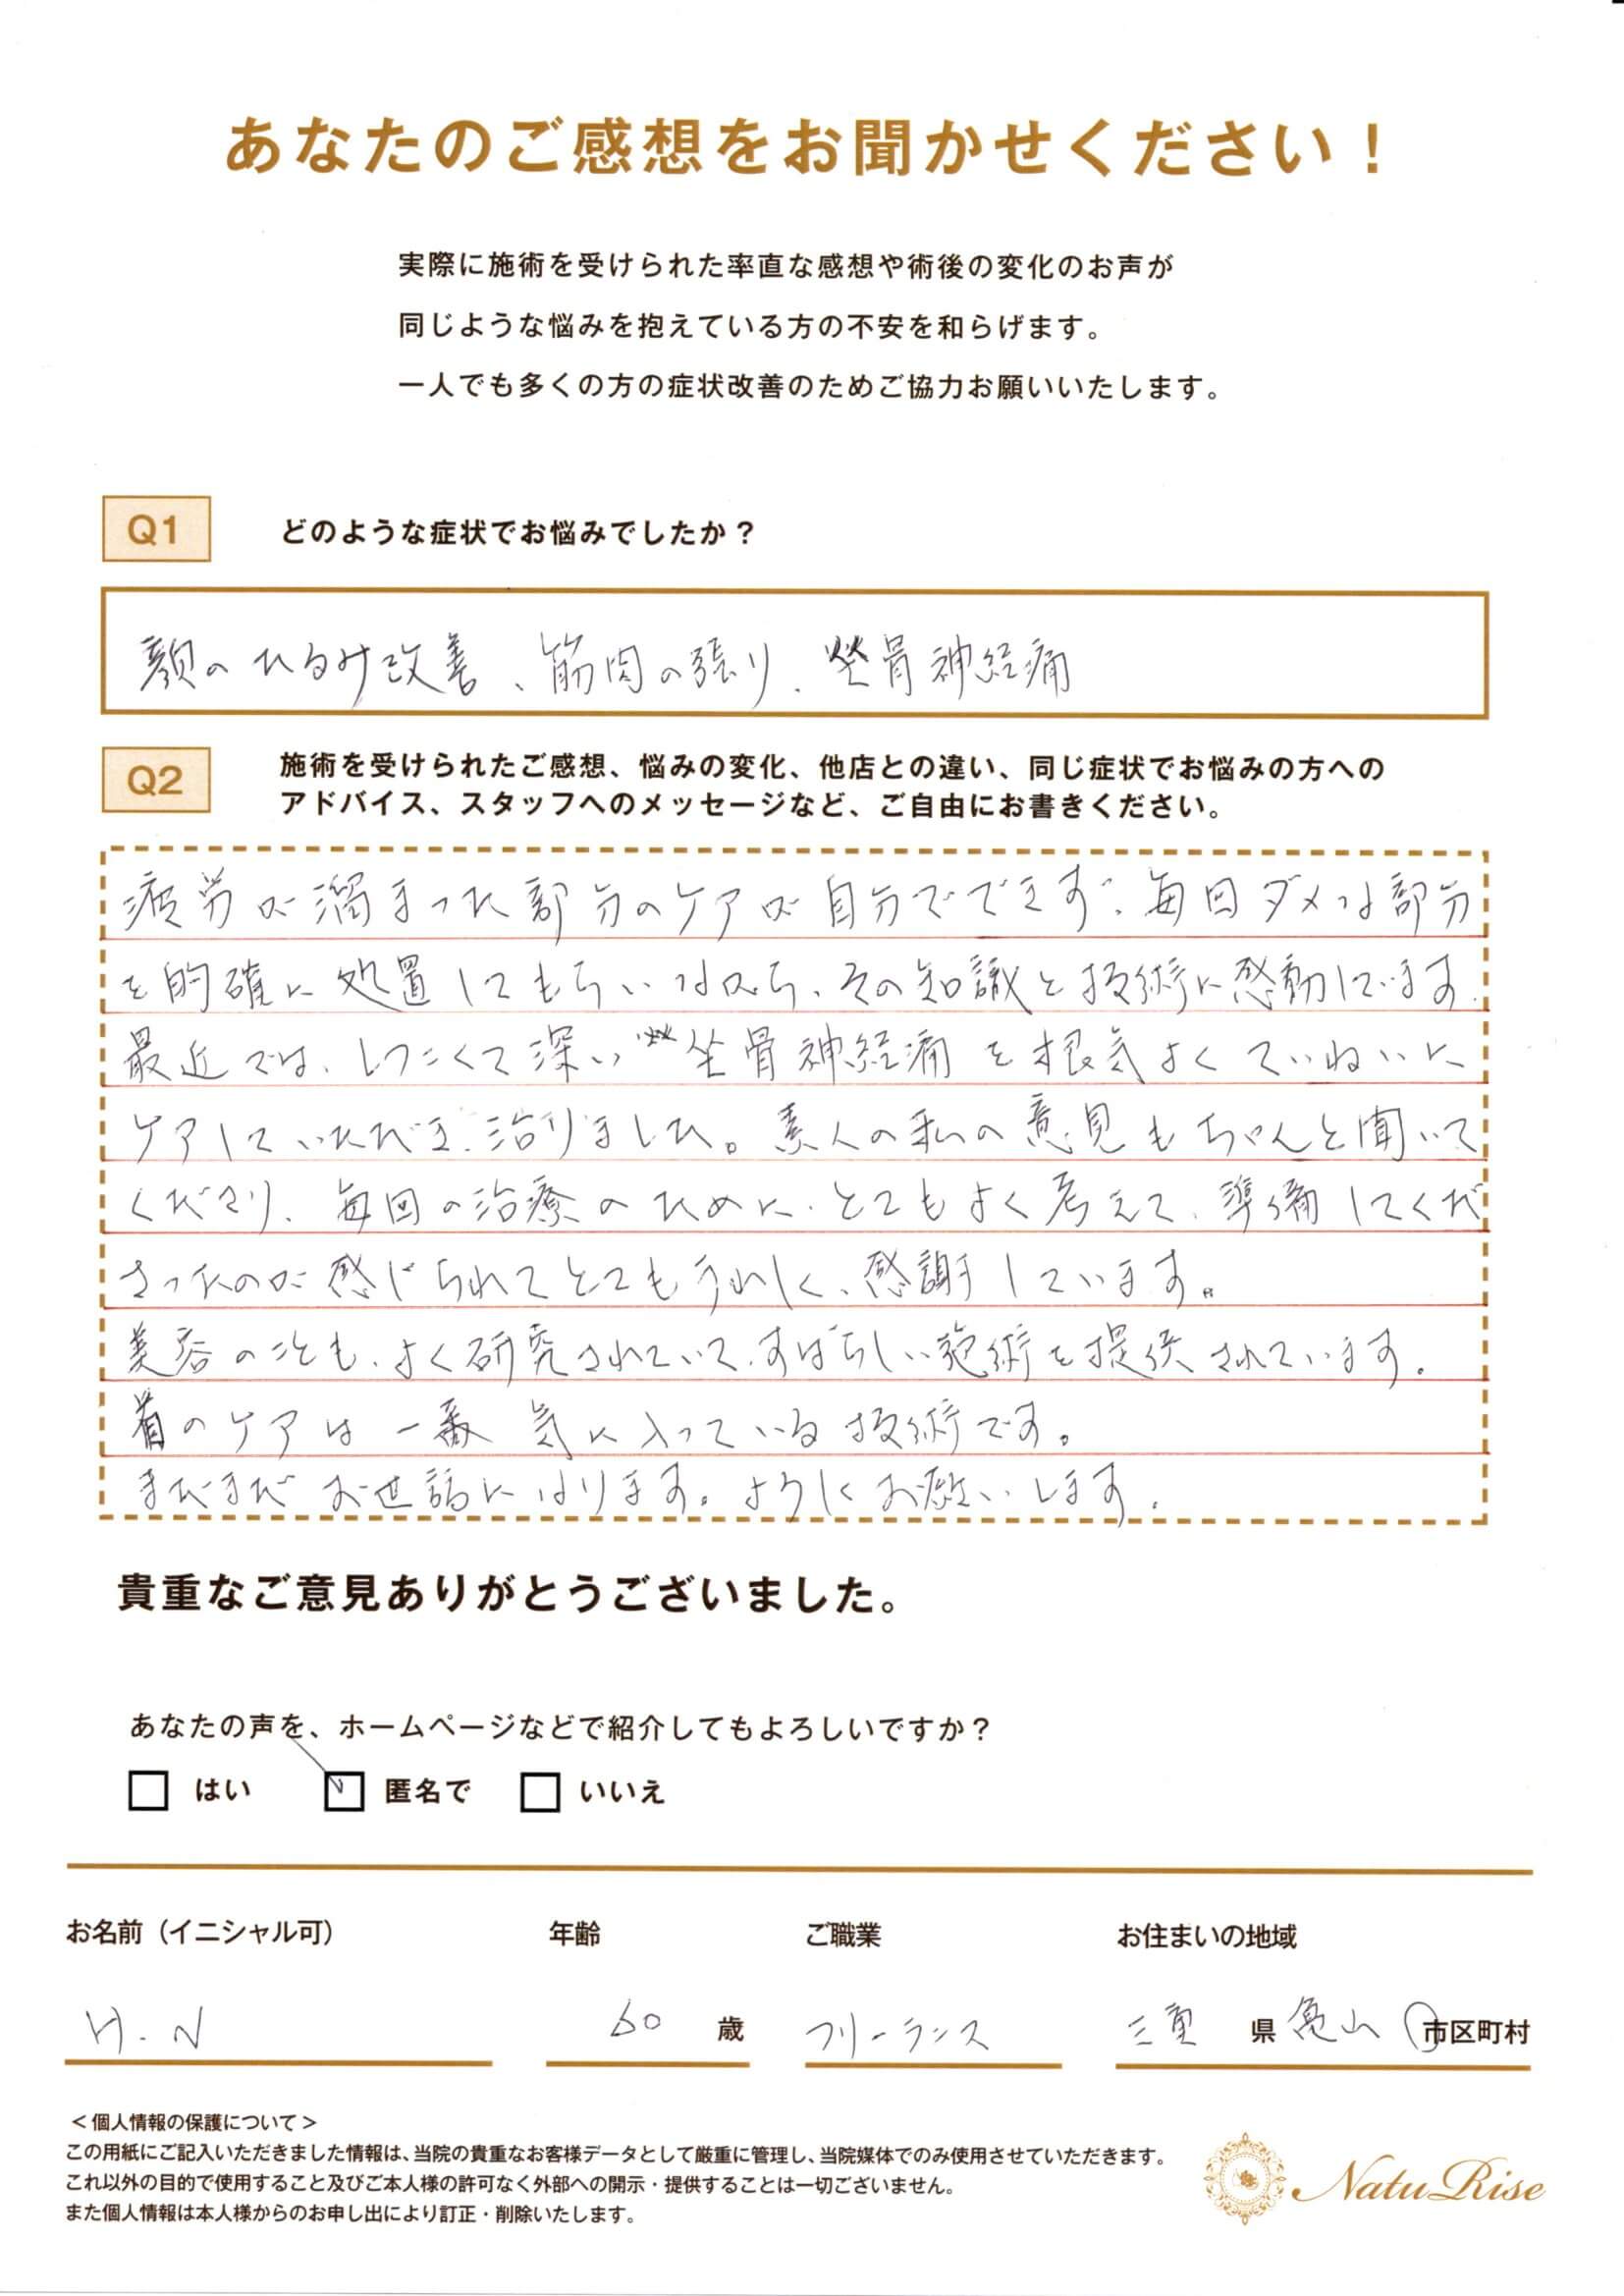 あなたのご感想をお聞かせください！
実際に施術を受けられた率直な感想や術後の変化のお声が
同じような悩みを抱えている方の不安を和らげます。
一人でも多くの方の症状改善のためご協力お願いいたします。
Q1 どのような症状でお悩みでしたか？
顔のたるみ改善、筋肉の張り、坐骨神経痛
Q2 施術を受けられたご感想、悩みの変化、他店との違い、同じ症状でお悩みの方への
アドバイス、スタッフへのメッセージなど、ご自由にお書きください。
疲労が溜まった部分のケアが自分でできず、毎回ダメな部分
を的確に処置してもらいながら、その知識と技術に感動しています。
最近では、しつこくて深い坐骨神経痛を根気よくていねいに
ケアしていただき、治りました。素人の私の意見もちゃんと聞いて
くださり、毎回の治療のために、とてもよく考えて、準備してくだ
さったのが感じられてとてもうれしく、感謝しています。
美容のことも、よく研究されていて、すばらしい施術を提供されています。
首のケアは一番気に入っている技術です。
まだまだお世話になります。よろしくお願いします。
貴重なご意見ありがとうございました。
あなたの声を、ホームページなどで紹介してもよろしいですか？
はい 匿名で いいえ
お名前（イニシャル可） 年齢 ご職業 お住まいの地域
H.N 60 歳 フリーランス 三重 県 亀山 市区町村
＜個人情報の保護について＞
この用紙にご記入いただきました情報は、当院の貴重なお客様データとして厳重に管理し、当院媒体でのみ使用させていただきます。
これ以外の目的で使用すること及びご本人様の許可なく外部への開示・提供することは一切ございません。
また個人情報は本人様からのお申し出により訂正・削除いたします。
NatuRise